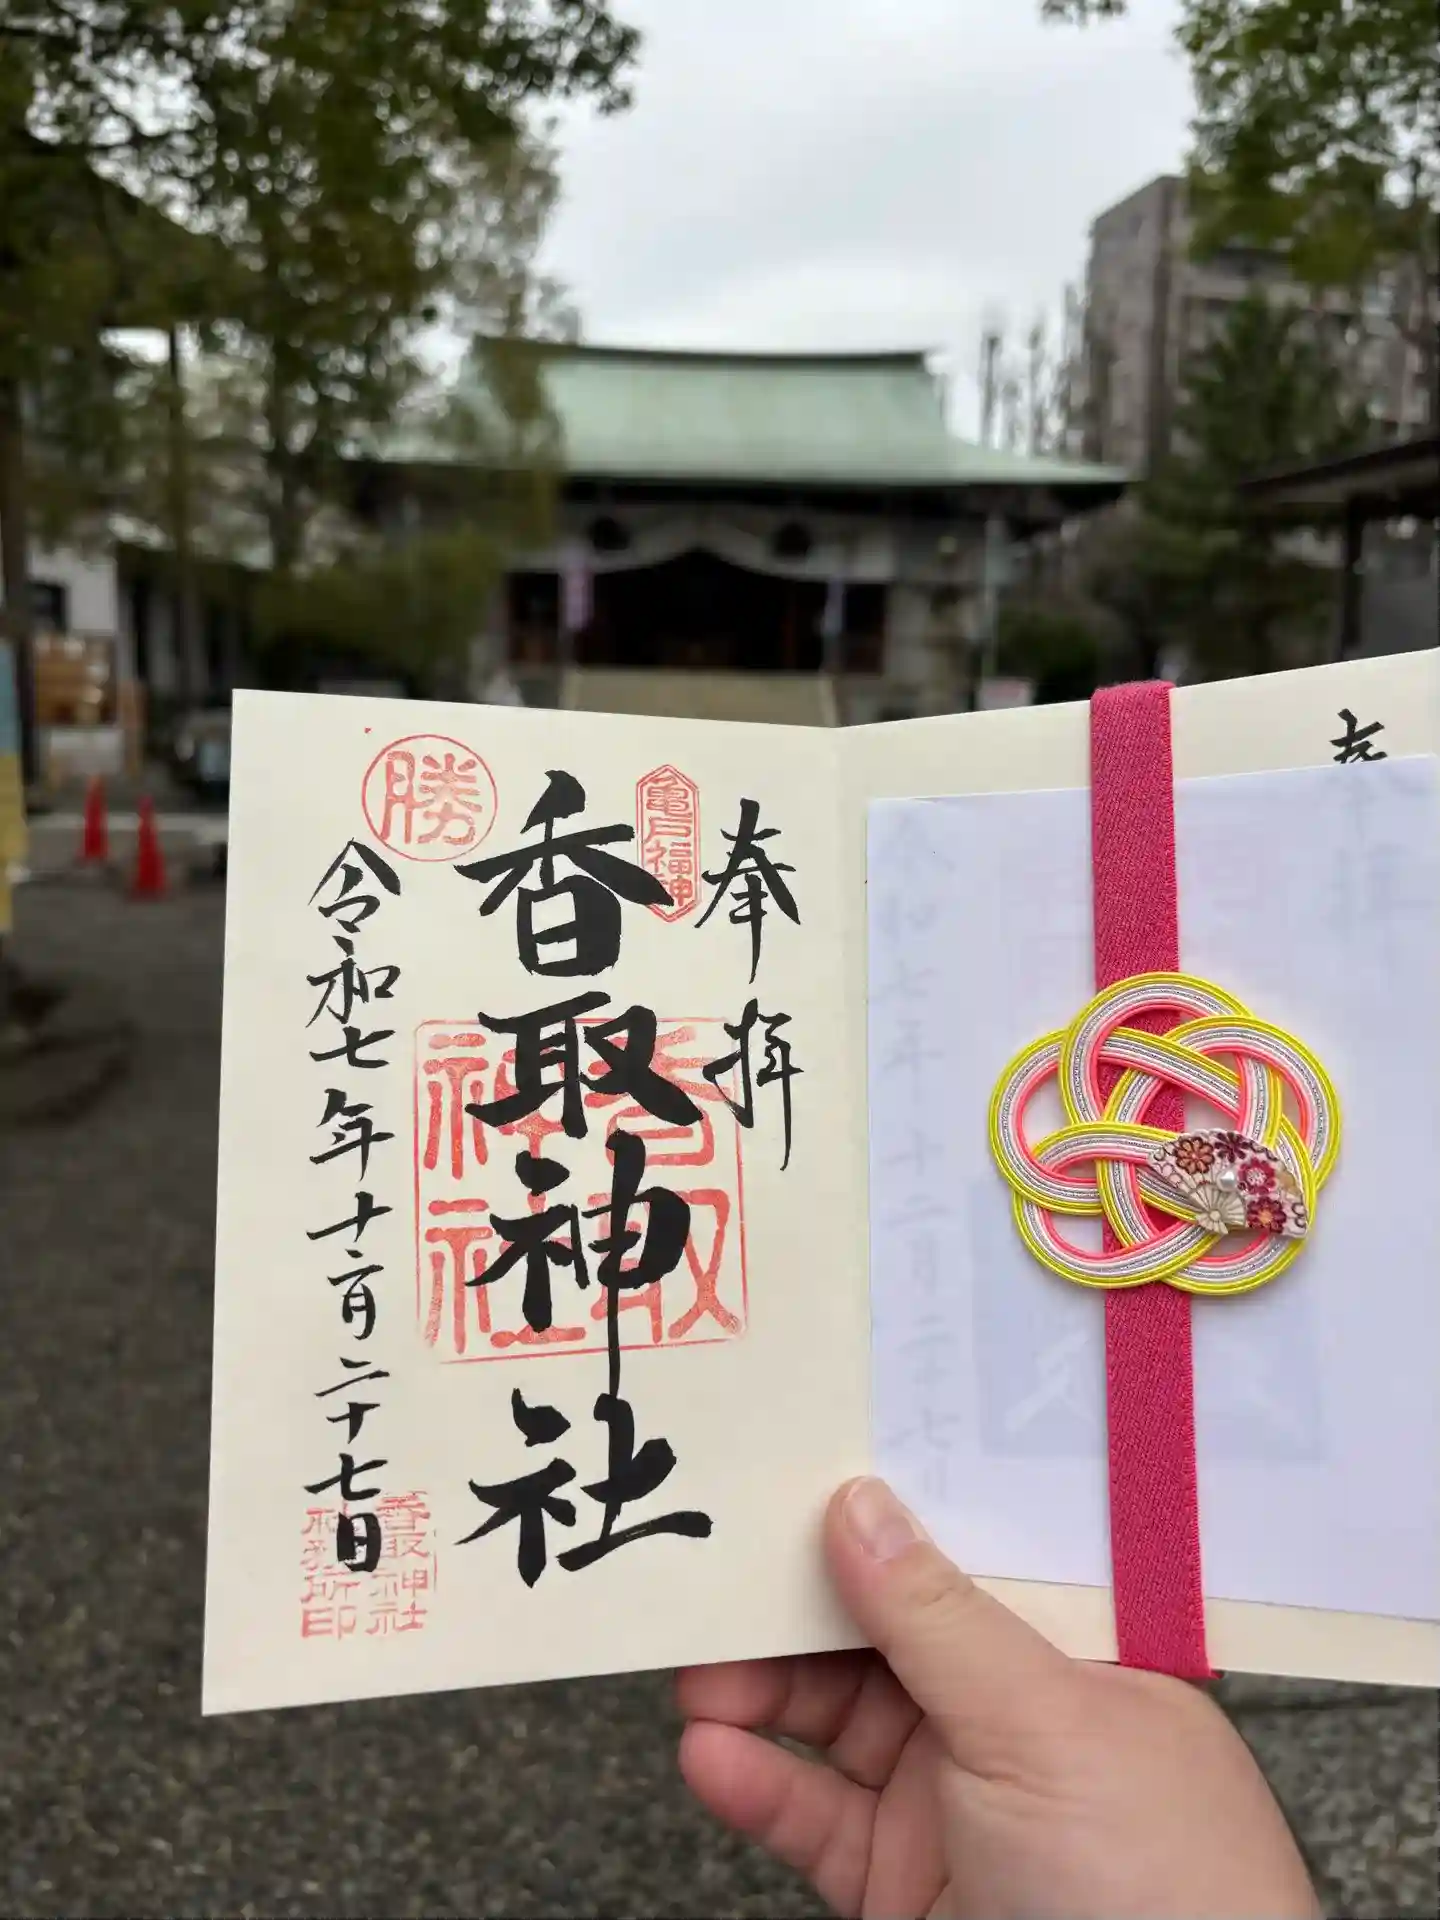 奉拝
亀戸福神
香取神社
香取神社
勝
令和七年十二月二十七日
香取神社
社務所印